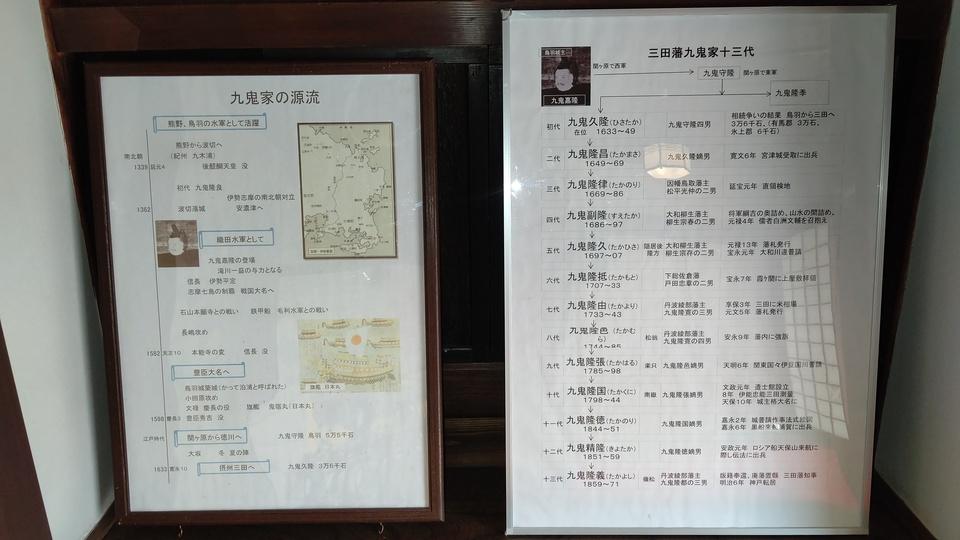 九鬼家の源流
熊野、鳥羽の水軍として活躍
熊野から波切へ
南北朝 (紀州 九木浦)
1339 延元4 後醍醐天皇 没
初代 九鬼隆良
伊勢志摩の南北朝対立
1362 波切落城 安濃津へ
織田水軍として
九鬼嘉隆の登場
滝川一益の与力となる
信長 伊勢平定
志摩七島の制覇 戦国大名へ
石山本願寺との戦い 鉄甲船 毛利水軍との戦い
長嶋攻め
1582 天正10 本能寺の変 信長 没
豊臣大名へ
鳥羽城築城(かって泊浦と呼ばれた)
小田原攻め
文禄 慶長の役 旗艦 鬼宿丸(日本丸)
1598 慶長3 豊臣秀吉 没
旗艦 日本丸
江戸時代 関ヶ原から徳川へ 九鬼守隆 鳥羽 5万5千石
大坂 冬 夏の陣
1633 寛永10 摂州三田へ 九鬼久隆 3万6千石
三田藩九鬼家十三代
鳥羽城主
九鬼嘉隆
関ヶ原で西軍
九鬼守隆 関ヶ原で東軍
九鬼隆季
初代 九鬼久隆(ひさたか) 在位 1633~49 九鬼守隆四男
相続争いの結果 鳥羽から三田へ
3万6千石、(有馬郡 3万石、
氷上郡 6千石)
二代 九鬼隆昌(たかまさ) 九鬼久隆嫡男 寛文6年 宮津城受取に出兵
1649~69
三代 九鬼隆律(たかのり) 因幡鳥取藩主 延宝元年 直領検地
1669~86 松平光仲の二男
四代 九鬼副隆(すえたか) 大和柳生藩主 将軍綱吉の奥詰め、山水の間詰め、
1686~97 柳生宗春の二男 元禄4年 儒者白洲文輔を召抱え
五代 九鬼隆久(たかひさ) 隠居後 大和柳生藩主 元禄13年 藩札発行
1697~07 隆方 柳生宗存の二男 宝永元年 大和川違普請
六代 九鬼隆抵(たかもと) 下総佐倉藩 宝永7年 霞ケ関に上屋敷拝領
1707~33 戸田忠章の二男
七代 九鬼隆由(たかより) 丹波綾部藩主 享保3年 三田に米相場
1733~43 九鬼隆寛の三男 元文5年 藩札発行
八代 九鬼隆邑(たかむら) 松翁 丹波綾部藩主 安永9年 藩内に強訴
1744~85 九鬼隆寛の四男
九代 九鬼隆張(たかはる) 楽只 九鬼隆邑嫡男 天明6年 関東国々伊豆国川普請
1785~98
十代 九鬼隆国(たかくに) 南嶽 九鬼隆張嫡男 文政元年 造士館設立
1798~44 8年 伊能忠能三田測量
天保10年 城主格大名に
十一代 九鬼隆徳(たかのり) 九鬼隆国嫡男 嘉永2年 城普請作事法式
1844~51 嘉永6年 黒船来航 浦賀に出兵
十二代 九鬼精隆(きよたか) 九鬼隆徳嫡男 安政元年 ロシア船天保山来航に
1851~59 際し伝法に出兵
十三代 九鬼隆義(たかよし) 嶺松 丹波綾部藩主 版籍奉還、廃藩置縣 三田藩知事
1859~71 九鬼隆都の三男 明治6年 神戸転居